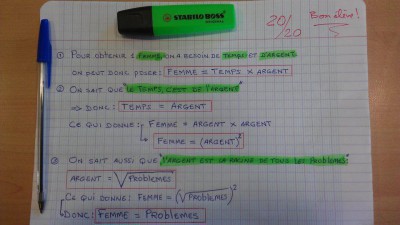 STABILO BOSS
20/20
Bon élève !
① Pour obtenir 1 femme, on a besoin de temps et d'argent
On peut donc poser : Femme = Temps x argent
② On sait que "le temps, c'est de l'argent"
⇒ Donc : Temps = Argent
Ce qui donne : Femme = argent x argent
Femme = (argent)²
③ On sait aussi que "l'argent est la racine de tous les problèmes"
argent = √Problemes
Ce qui donne : Femme = (√Problemes)²
Donc : Femme = Problemes